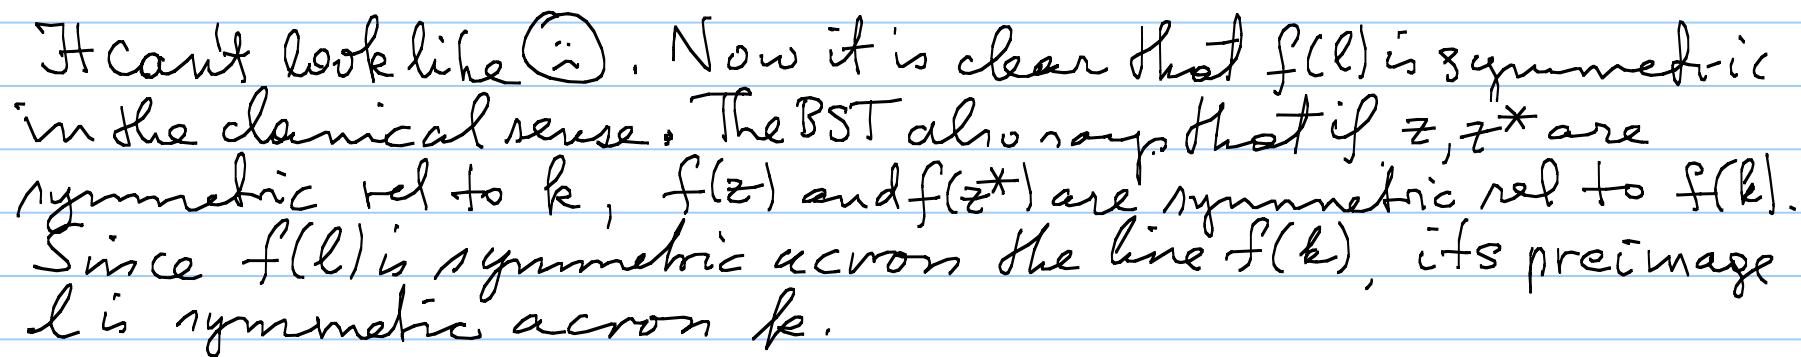 It can't look like ☹. Now it is clear that f(l) is symmetric
in the classical sense. The BST also says that if z, z* are
symmetric rel to k, f(z) and f(z*) are symmetric rel to f(k).
Since f(l) is symmetric across the line f(k), its preimage
l is symmetric across k.